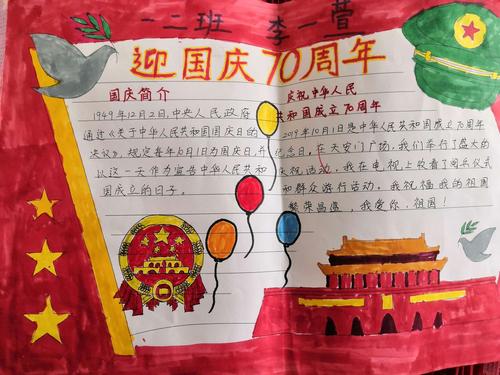 一二班 李一萱
迎国庆70周年
国庆简介
1949年12月2日,中央人民政府
通过《关于中华人民共和国国庆日的
决议》,规定每年10月1日为国庆日,并
以这一天作为宣告中华人民共和
国成立的日子。
庆祝中华人民
共和国成立70周年
2019年10月1日是中华人民共和国成立70周年
纪念日。在天安门广场,我们举行了盛大的
庆祝活动。我在电视上收看了阅兵仪式
和群众游行活动。我祝福我的祖国
繁荣昌盛,我爱你,祖国!